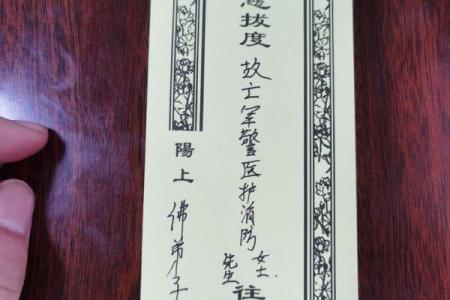 拔度 故亡军警医护消防 女士 先生 往
陽上 佛弟子